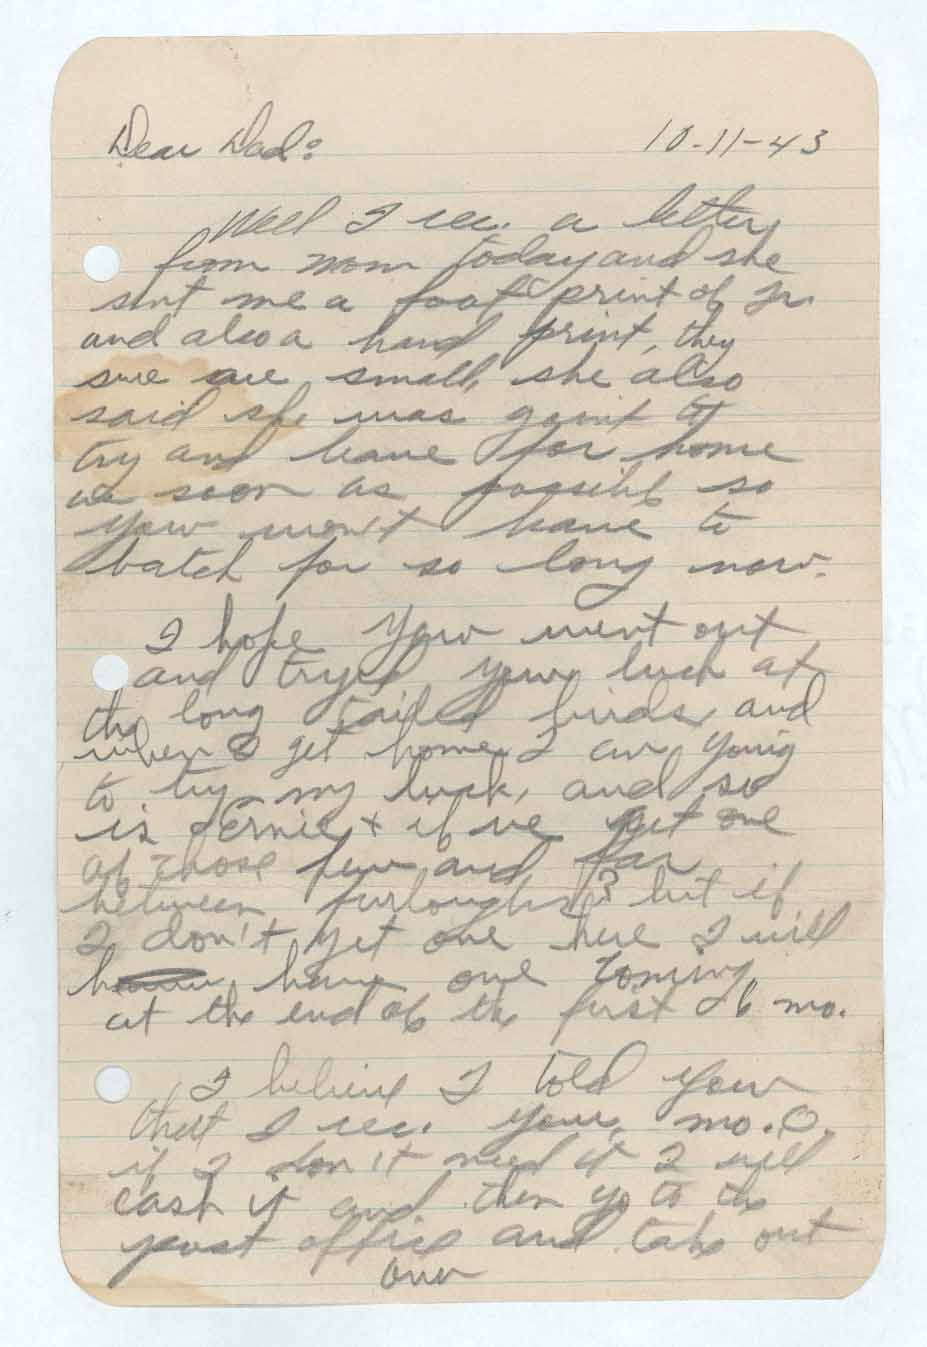 Dear Dad: 10-11-43
Well I rec. a letter
from mom today and she
sent me a foot print of Jr.
and also a hand print, they
sure are small, she also
said she was goint to
try and leave for home
as soon as possible so
you won't have to
batch for so long now.
I hope you went out
and tryed your luck at
the long tailed birds, and
when I get home I am going
to try my luck, and so
is Ernie, + if we get one
of those few and far
between furloughs? but if
I don't get one here I will
have one coming
at the end of the first 6 mo.
I believe I told you
that I rec. your mo.O.
if I don't need it I will
cash it and then go to the
post office and take out
over